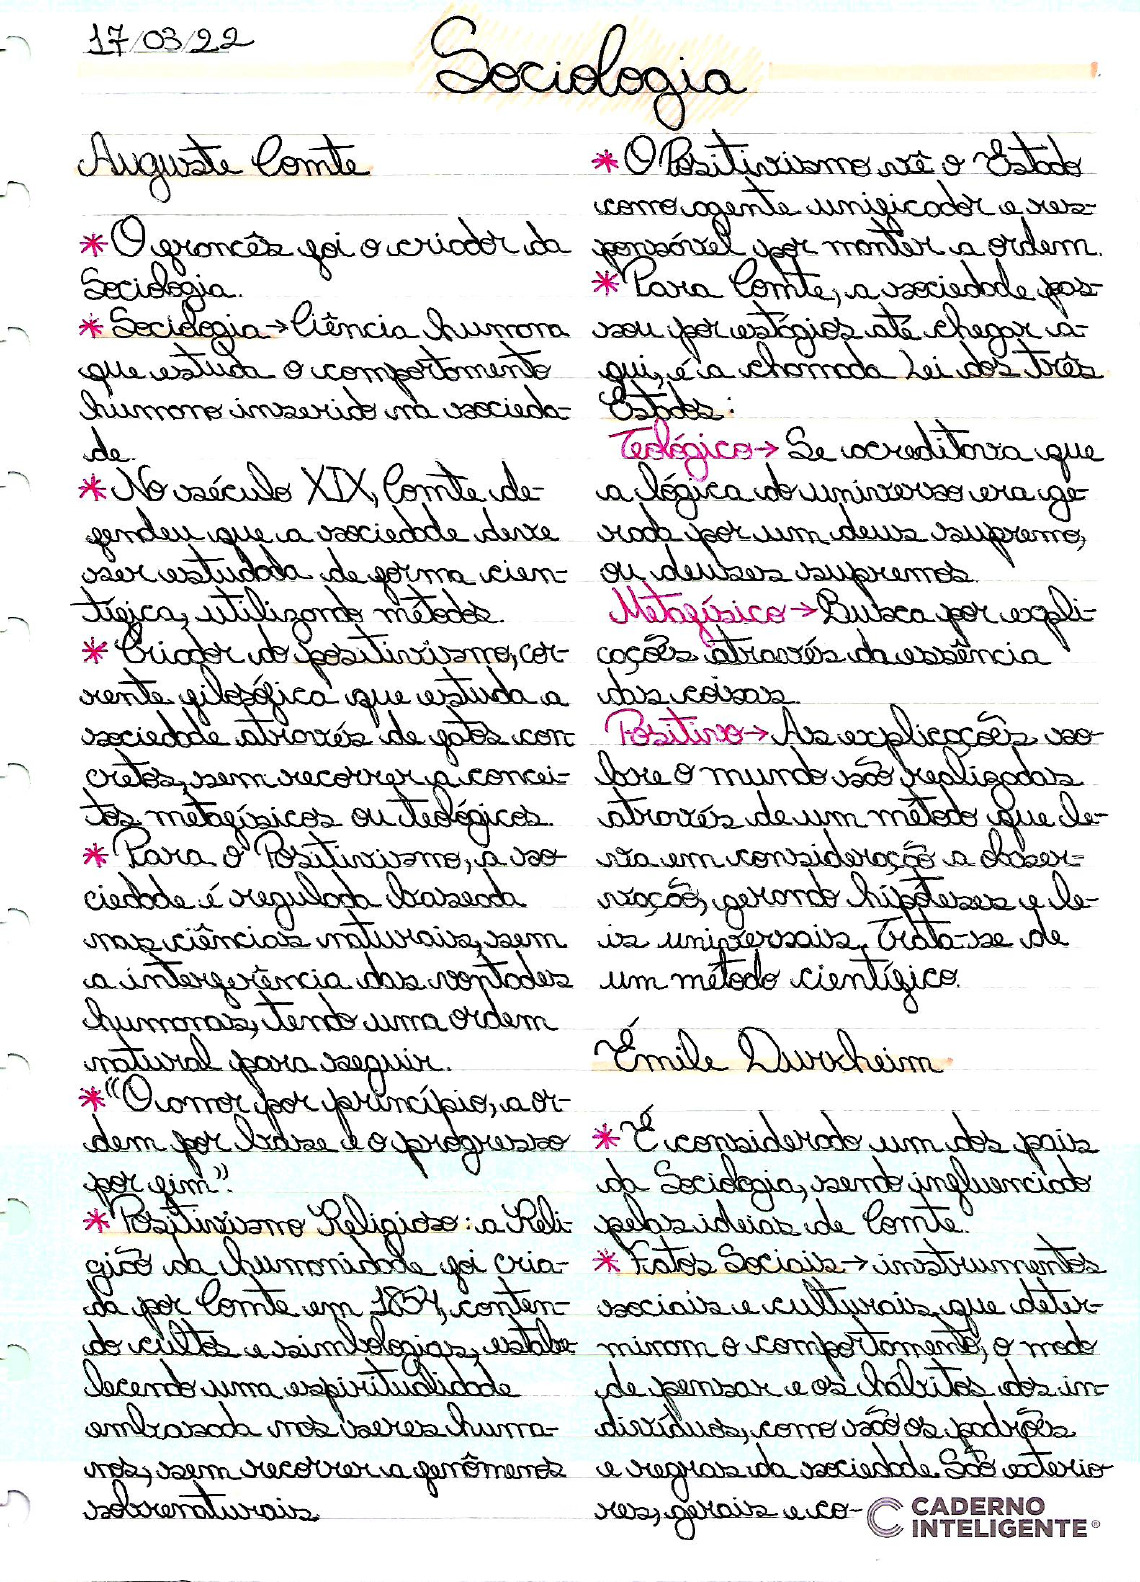 17/03/22
Sociologia
1.
Auguste Comte
* O francês foi o criador da
Sociologia.
* Sociologia → Ciência humana
que estuda o comportamento
humano inserido na socieda-
de.
* No século XIX, Comte de-
fendeu que a sociedade deve
ser estudada de forma cien-
tífica, utilizando métodos.
* Criador do positivismo, cor-
rente filosófica que estuda a
sociedade através de fatos con
cretos, sem recorrer a concei-
tos metafísicos ou teológicos.
* Para o Positivismo, a so-
ciedade é regulada baseada
nas ciências naturais, sem
a interferência das vontades
humanas, tendo uma ordem
natural para seguir.
* "O amor por princípio, a or-
dem por base e o progresso
por fim".
* Positivismo Religioso: a Reli-
gião da humanidade foi cria-
da por Comte em 1854, conten-
do cultos e simbologias, estabe-
lecendo uma espiritualidade
embasada nos seres huma-
nos, sem recorrer a fenômenos
sobrenaturais.
* O Positivismo vê o Estado
como agente unificador e res-
ponsável por manter a ordem.
* Para Comte, a sociedade pas-
sou por estágios até chegar a-
qui, é a chamada Lei dos três
Estados:
Teológico → Se acreditava que
a lógica do universo era ge-
rada por um deus supremo,
ou deuses supremos.
Metafísico → Busca por expli-
cações através da essência
das coisas.
Positivo → As explicações so-
bre o mundo são realizadas
através de um método que le-
va em consideração a obser-
vação, gerando hipóteses e le-
is universais. Trata-se de
um método científico.
Émile Durkheim
* É considerado um dos pais
da Sociologia, sendo influenciado
pelas ideias de Comte.
* Fatos Sociais → instrumentos
sociais e culturais que deter-
minam o comportamento, o modo
de pensar e os hábitos dos in-
divíduos, como são os padrões
e regras da sociedade. São exterio
res, gerais e co-
CADERNO
INTELIGENTE®